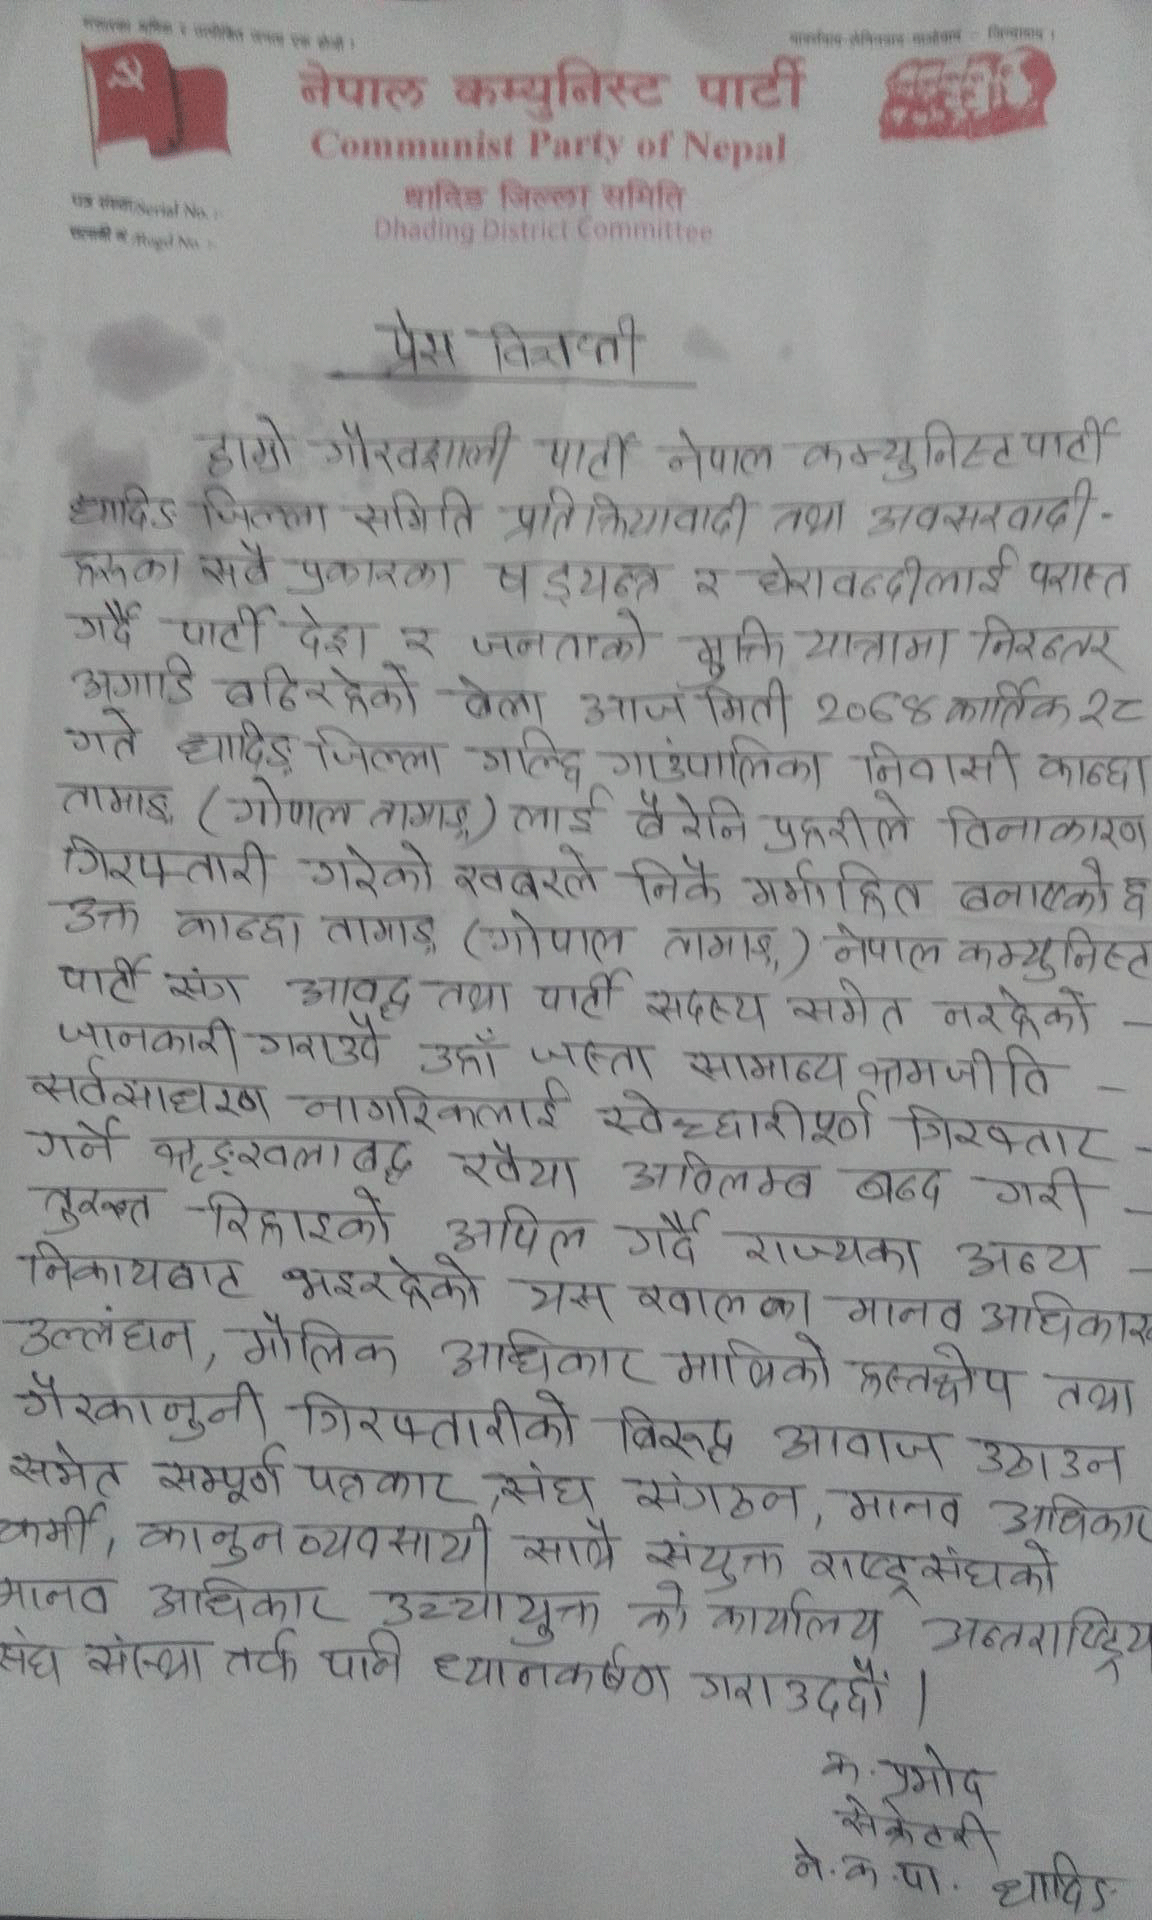 संसारका श्रमिक र उत्पीडित जनता एक होऔं !
मार्क्सवाद-लेनिनवाद-माओवाद - जिन्दावाद !
नेपाल कम्युनिस्ट पार्टी
Communist Party of Nepal
धादिङ जिल्ला समिति
Dhading District Committee
पत्र संख्या/Serial No. :
/Regd No. :
प्रेस विज्ञप्ती
हाम्रो गौरवशाली पार्टी नेपाल कम्युनिस्ट पार्टी
धादिङ जिल्ला समिति प्रतिक्रियावादी तथा अवसरवादी-
हरुका सवै प्रकारका षड्यन्त्र र घेरावन्दीलाई परास्त
गर्दै पार्टी देश र जनताको मुक्ति यात्रामा निरन्तर
अगाडि वढिरहेको वेला आज मिती २०७४ कार्तिक २८
गते धादिङ जिल्ला गल्छि गाउंपालिका निवासी कान्छा
तामाङ (गोपाल तामाङ) लाई वैरेनि प्रहरीले विनाकारण
गिरफ्तारी गरेको खबरले निकै मर्माहित बनाएको छ
उक्त कान्छा तामाङ (गोपाल तामाङ) नेपाल कम्युनिस्ट
पार्टी संग आवद्ध तथा पार्टी सदस्य समेत नरहेको -
जानकारी गराउदै उहाँ जस्ता सामान्य श्रमजीवि -
सर्वसाधरण नागरिकलाई स्वेच्छारीपूर्ण गिरफ्तार -
गर्ने श्रृङ्खलाबद्ध रवैया अविलम्ब बन्द गरी -
तुरुन्त रिहाइको अपिल गर्दै राज्यका अन्य -
निकायबाट भइरहेको यस खालका मानव अधिकार
उल्लंघन, मौलिक अधिकार माथिको हस्तक्षेप तथा
गैरकानुनी गिरफ्तारीको बिरुद्ध आवाज उठाउन
समेत सम्पूर्ण पत्रकार, संघ संगठन, मानव अधिकार
कर्मी, कानुन व्यवसायी साथै संयुक्त राष्ट्र संघको
मानव अधिकार उच्चायुक्त को कार्यालय अन्तराष्ट्रिय
संघ संस्था तर्फ पनि ध्यानकर्षण गराउदछौं ।
क. प्रमोद
सेक्रेटरी
ने. क. पा. धादिङ